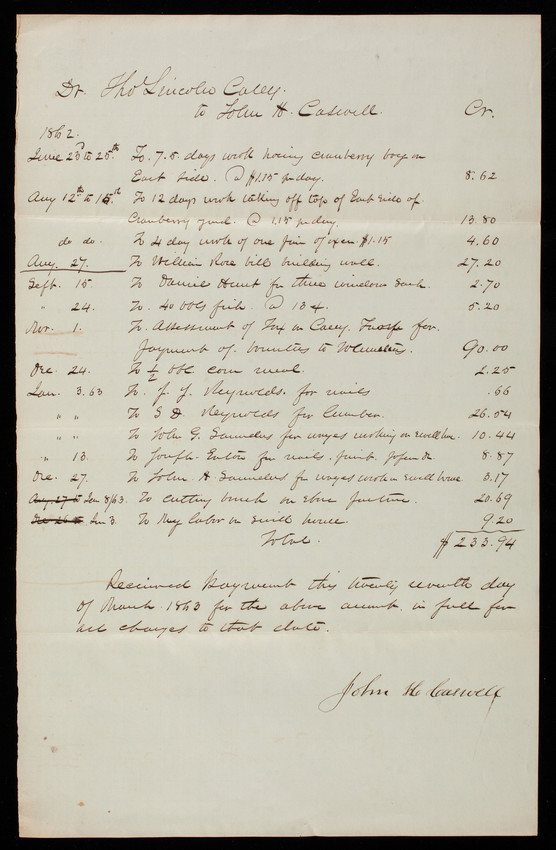 Dr. Thos Lincoln Casey.
to John H. Caswell. Cr.
1862.
June 23d to 25th To. 7.5. days work hoeing cranberry bog on
East side. @ $1.15 pr day. 8.62
Aug 12th to 15th To 12 days work taking off top of East side of
Cranberry yard. @ 1.15 pr day. 13.80
do do. To 4 day work of one pair of oxen $1.15 4.60
Aug. 27. To William Rose bill building wall. 27.20
Sept. 15. To Daniel Hunt for three window sash. 2.70
" 24. To. 40 bbls fish. @ 13 c. 5.20
Nov. 1. To Assessment of Tax on Casey for
payment of bounties to Volunteers. 90.00
Dec. 24. To ½ bbl corn meal. 2.25
Jan. 3. 63 To. J. Y. Reynolds. for nails .66
" " To S D. Reynolds for lumber. 26.54
" " To John G. Saunders for wages working on swill house. 10.44
" 13. To Joseph Eaton for nails. paint. 8.87
Dec. 27. To John. A. Saunders for wages work on swill house 3.17
Aug. 27 to Jan 8/63. To cutting brush on Shore pasture. 20.69
Dec 26 to Jan 3. To My labor on swill house. 9.20
Total. $233.94
Received Payment this twenty seventh day
of March 1863 for the above amount. in full for
all charges to that date.
John H Caswell